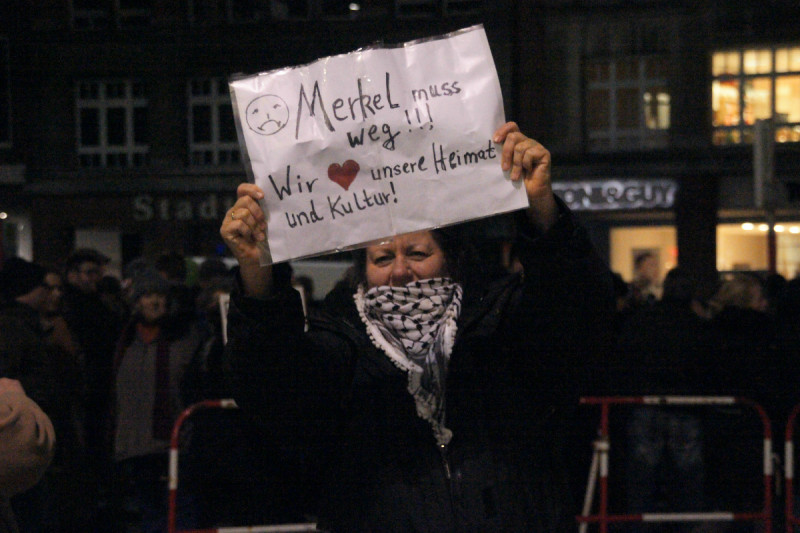 Merkel muss
weg!!!
Wir ♥ unsere Heimat
und Kultur!
Stad
ONI&GUY